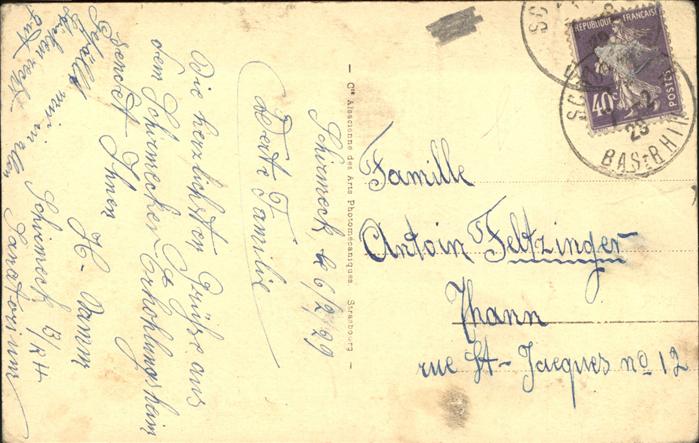 Schirmeck, le 6/2/29
Werte Familie
Die herzlichsten Grüße aus
dem Schirmecker Erhohlungsheim
sendet Ihnen
H. Damm
Schirmeck B/RH
Sanatorium
Gefällt mir in allen
recht
gut
Cie Alsacienne des Arts Photomécaniques - Strasbourg
Famille
Antoin Feltzinger
Thann
rue St-Jacques no 12
REPUBLIQUE FRANÇAISE
40c
POSTES
SC
BAS-RHIN